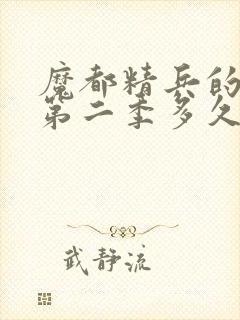 魔都精兵的
第二季多久
武静流